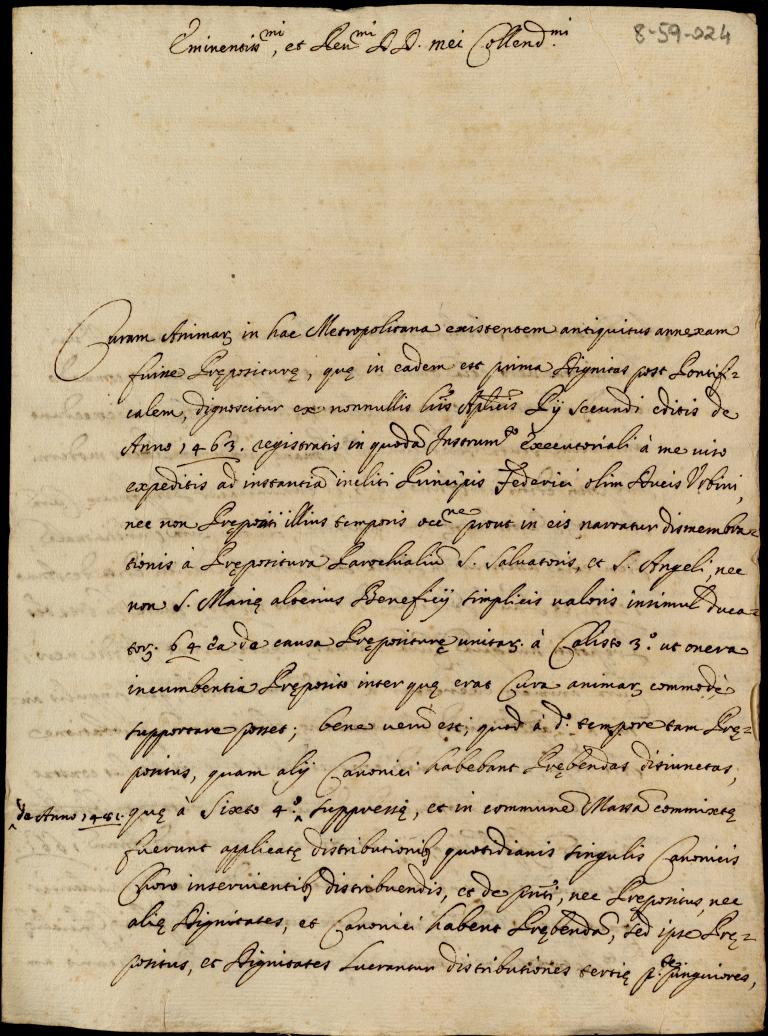 8-59-024
Eminentiss.mi, et Reu.mi DD. mei Collend.mi
Curam Animarʒ in hac Metropolitana existentem antiquitus annexam
fuisse Pręposituręe, quę in eadem est prima Dignitas post Pontifi=
calem, dignoscitur ex nonnullis lr̃is Aplicis Pij secundi editis de
Anno 1463. registratis in quodã Instrum.to executoriali à me uiso
expeditis ad instantiã incliti Principis Federici olim Ducis Vrbini,
nec non Prepositi illius temporis occ.ne prout in eis narratur dismembra=
tionis à Prępositura Parochialiũ S. Saluatoris, et S. Angeli, nec
non S. Marię alterius Beneficij simplicis ualoris insimul Duca=
torʒ. 64 ea de causa Pręposituręe unitarʒ. à Calisto 3.º ut onera
incumbentia Pręposito inter quę erat Cura animarʒ commodè
supportare posset; bene uerũ est; quod à d.º tempore tam Pre=
positus, quam alij Canonici habebant Pręběndas disiunctas,
^de Anno 1481. quę à Sixto 4.º ^ suppressę, et in commune Massã commixtę
fuerunt applicatę distributionibʒ quotidianis singulis Canonicis
Choro inseruientibʒ distribuendis, et de pnti, nec Prępositus, nec
alię Dignitates, et Canonici habent Pręběndã, sed ipse Prę=
positus, et Dignitates lucrantur distributiones tertię p.te pinguiores,